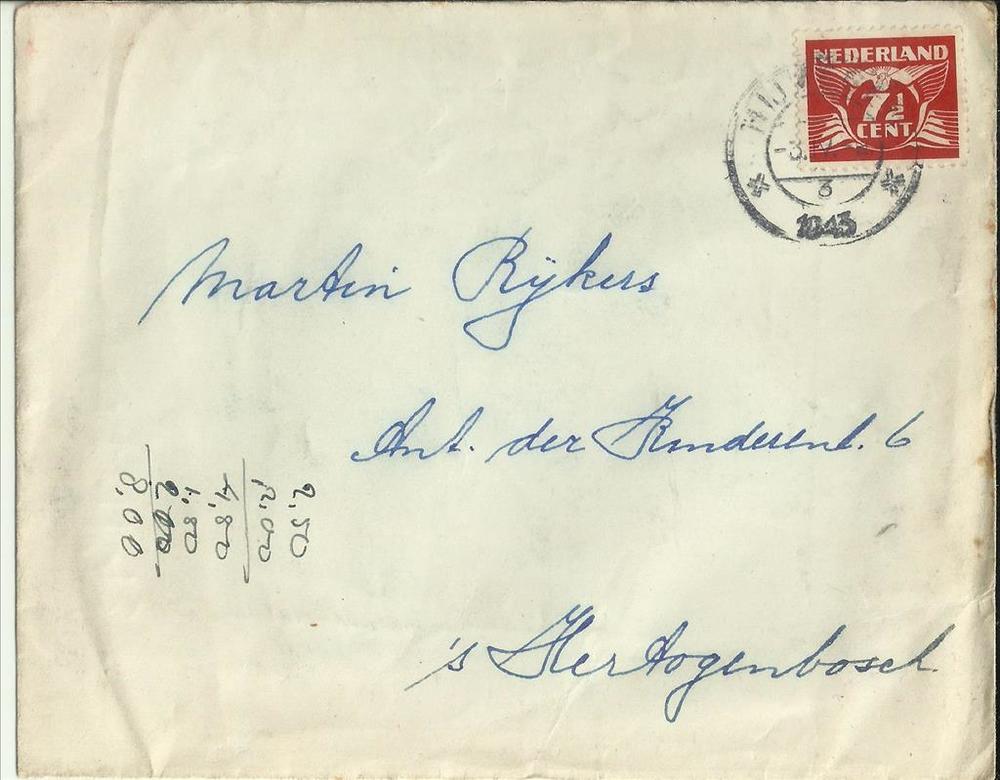 NEDERLAND
7½
CENT
3
1943
Martin Rijkers
Ant. der Kinderenl. 6
's Hertogenbosch
2,50
4,80
1,80
8,00